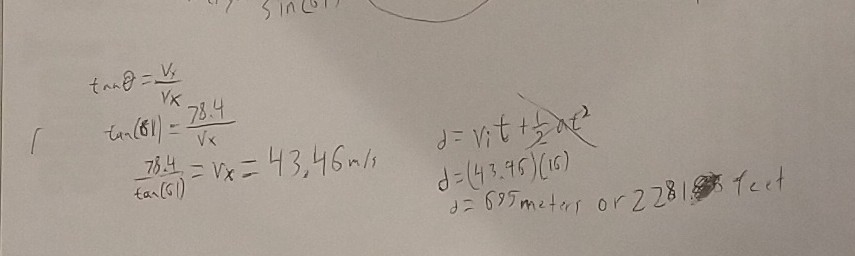 sin(61)
tanθ = Vy/Vx
tan(61) = 78.4/Vx
78.4/tan(61) = Vx = 43.46 m/s
d = Vit + 1/2 at²
d = (43.46)(16)
d = 695 meters or 2281 feet